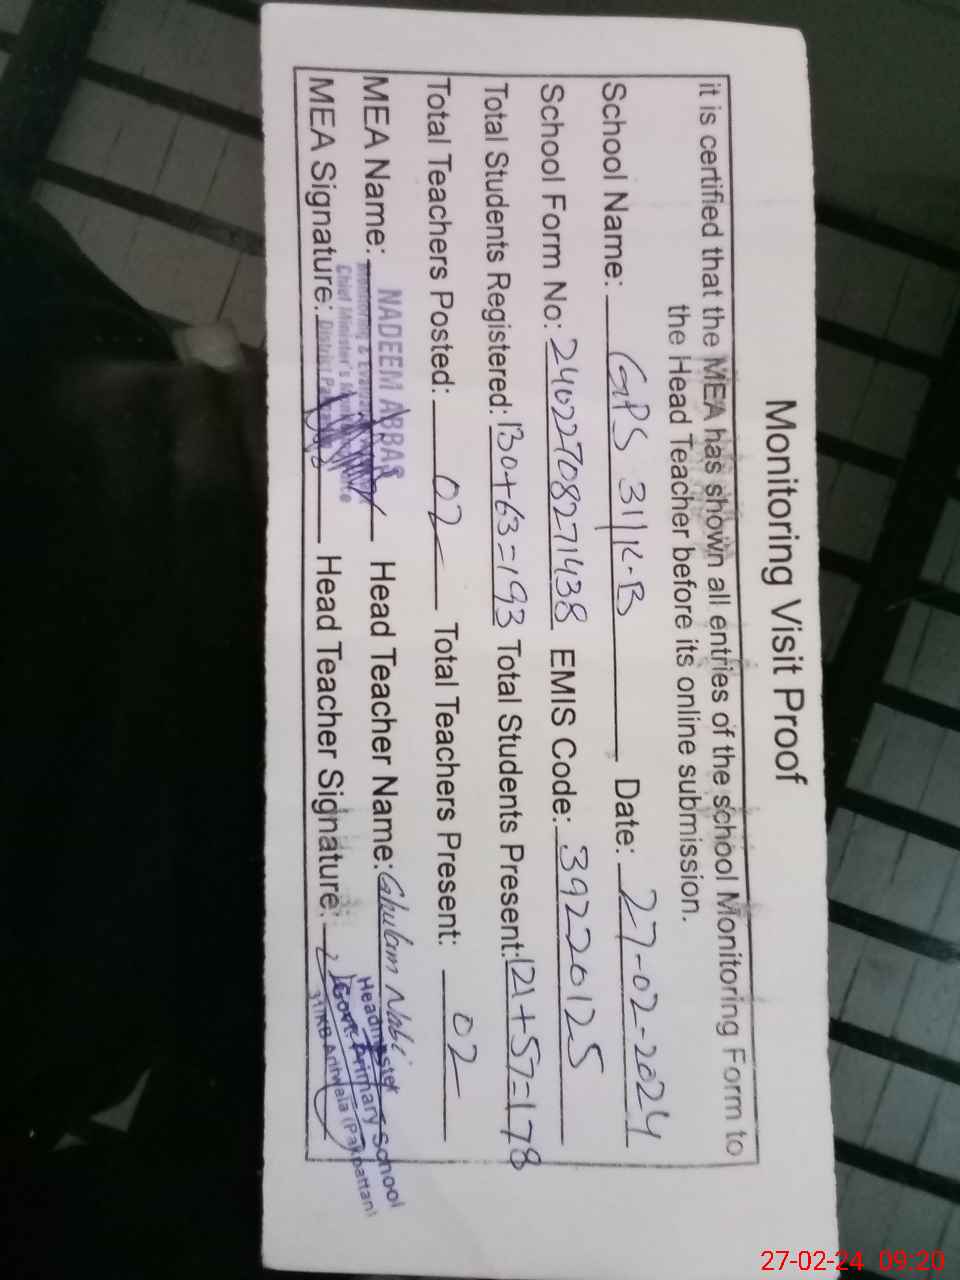 Monitoring Visit Proof
it is certified that the MEA has shown all entries of the school Monitoring Form to
the Head Teacher before its online submission.
School Name: GPS 31/K.B Date: 27-02-2024
School Form No: 24022708271438 EMIS Code: 39220125
Total Students Registered: 130+63=193 Total Students Present: 121+57=178
Total Teachers Posted: 02 Total Teachers Present: 02
MEA Name: Head Teacher Name: Ghulam Nabi
NADEEM ABBAS
Monitoring &
Chief Minister's
District
MEA Signature: Head Teacher Signature:
Headmaster
Govt. Primary School
31/KB Arifwala (Pakpattan)
27-02-24 09:20